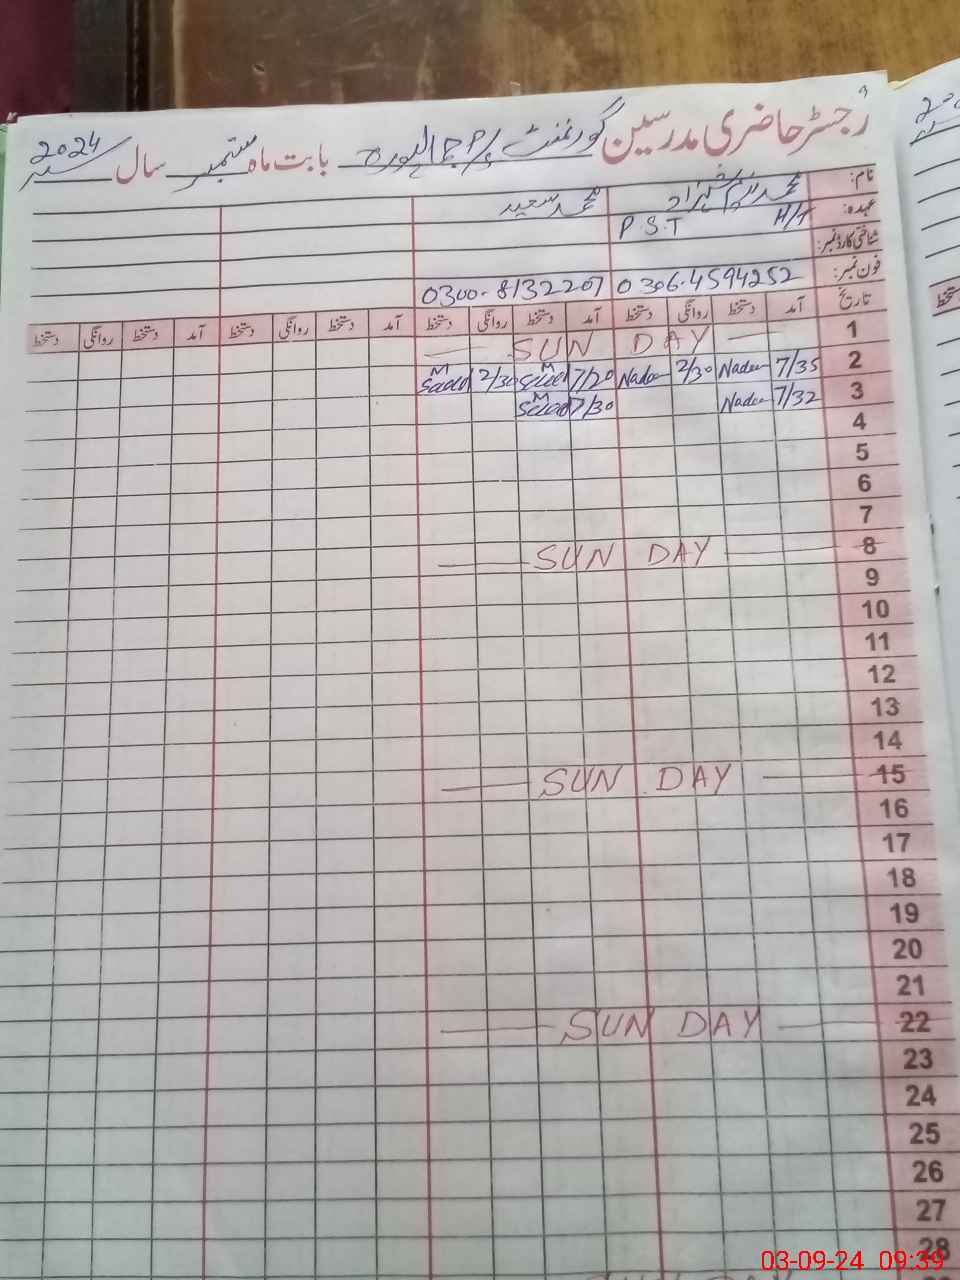 رجسٹر حاضری مدرسین گورنمنٹ P/S جمالپورہ بابت ماہ ستمبر سال 2024
نام: محمد ندیم شہزاد محمد سعید
عہدہ: H/T P.S.T
شناختی کارڈ نمبر:
فون نمبر: 0306-4594252 0300-8132207
تاریخ آمد دستخط روانگی دستخط آمد دستخط روانگی دستخط آمد دستخط روانگی دستخط آمد دستخط روانگی دستخط
1 SUN DAY
2 7/35 Nadeem 2/30 Nadeem 7/20 M Saeed 2/30 M Saeed
3 7/32 Nadeem 7/30 M Saeed
4
5
6
7
8 SUN DAY
9
10
11
12
13
14
15 SUN DAY
16
17
18
19
20
21
22 SUN DAY
23
24
25
26
27
28
03-09-24 09:39